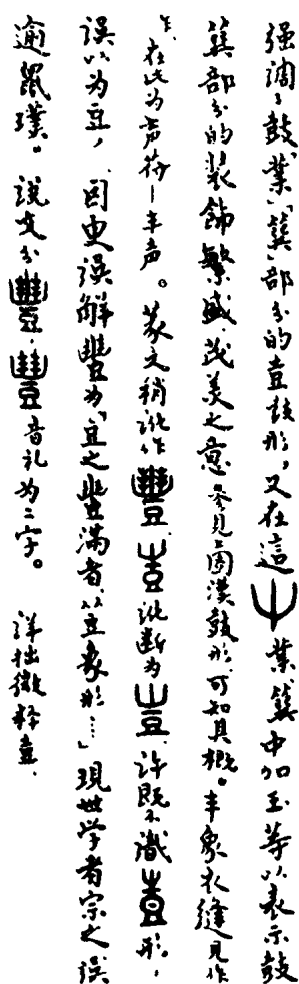 强调鼓、「業」「簨」部分的壴鼓形，又在這業、簨中加玉等以表示鼓
簨部分的装飾繁盛、茂美之意。参見上图漢鼓形，可知其概。丰象衣縫見作
在此为声符—丰声。篆文稍訛作豐，壴訛断为豆，許既不識壴形，
誤以为豆，因更誤解豐为「豆之豐满者，从豆象形……」現世学者宗之，誤
逾鼠璞。説文分豐、豊音礼为二字。詳拙微釋壴。